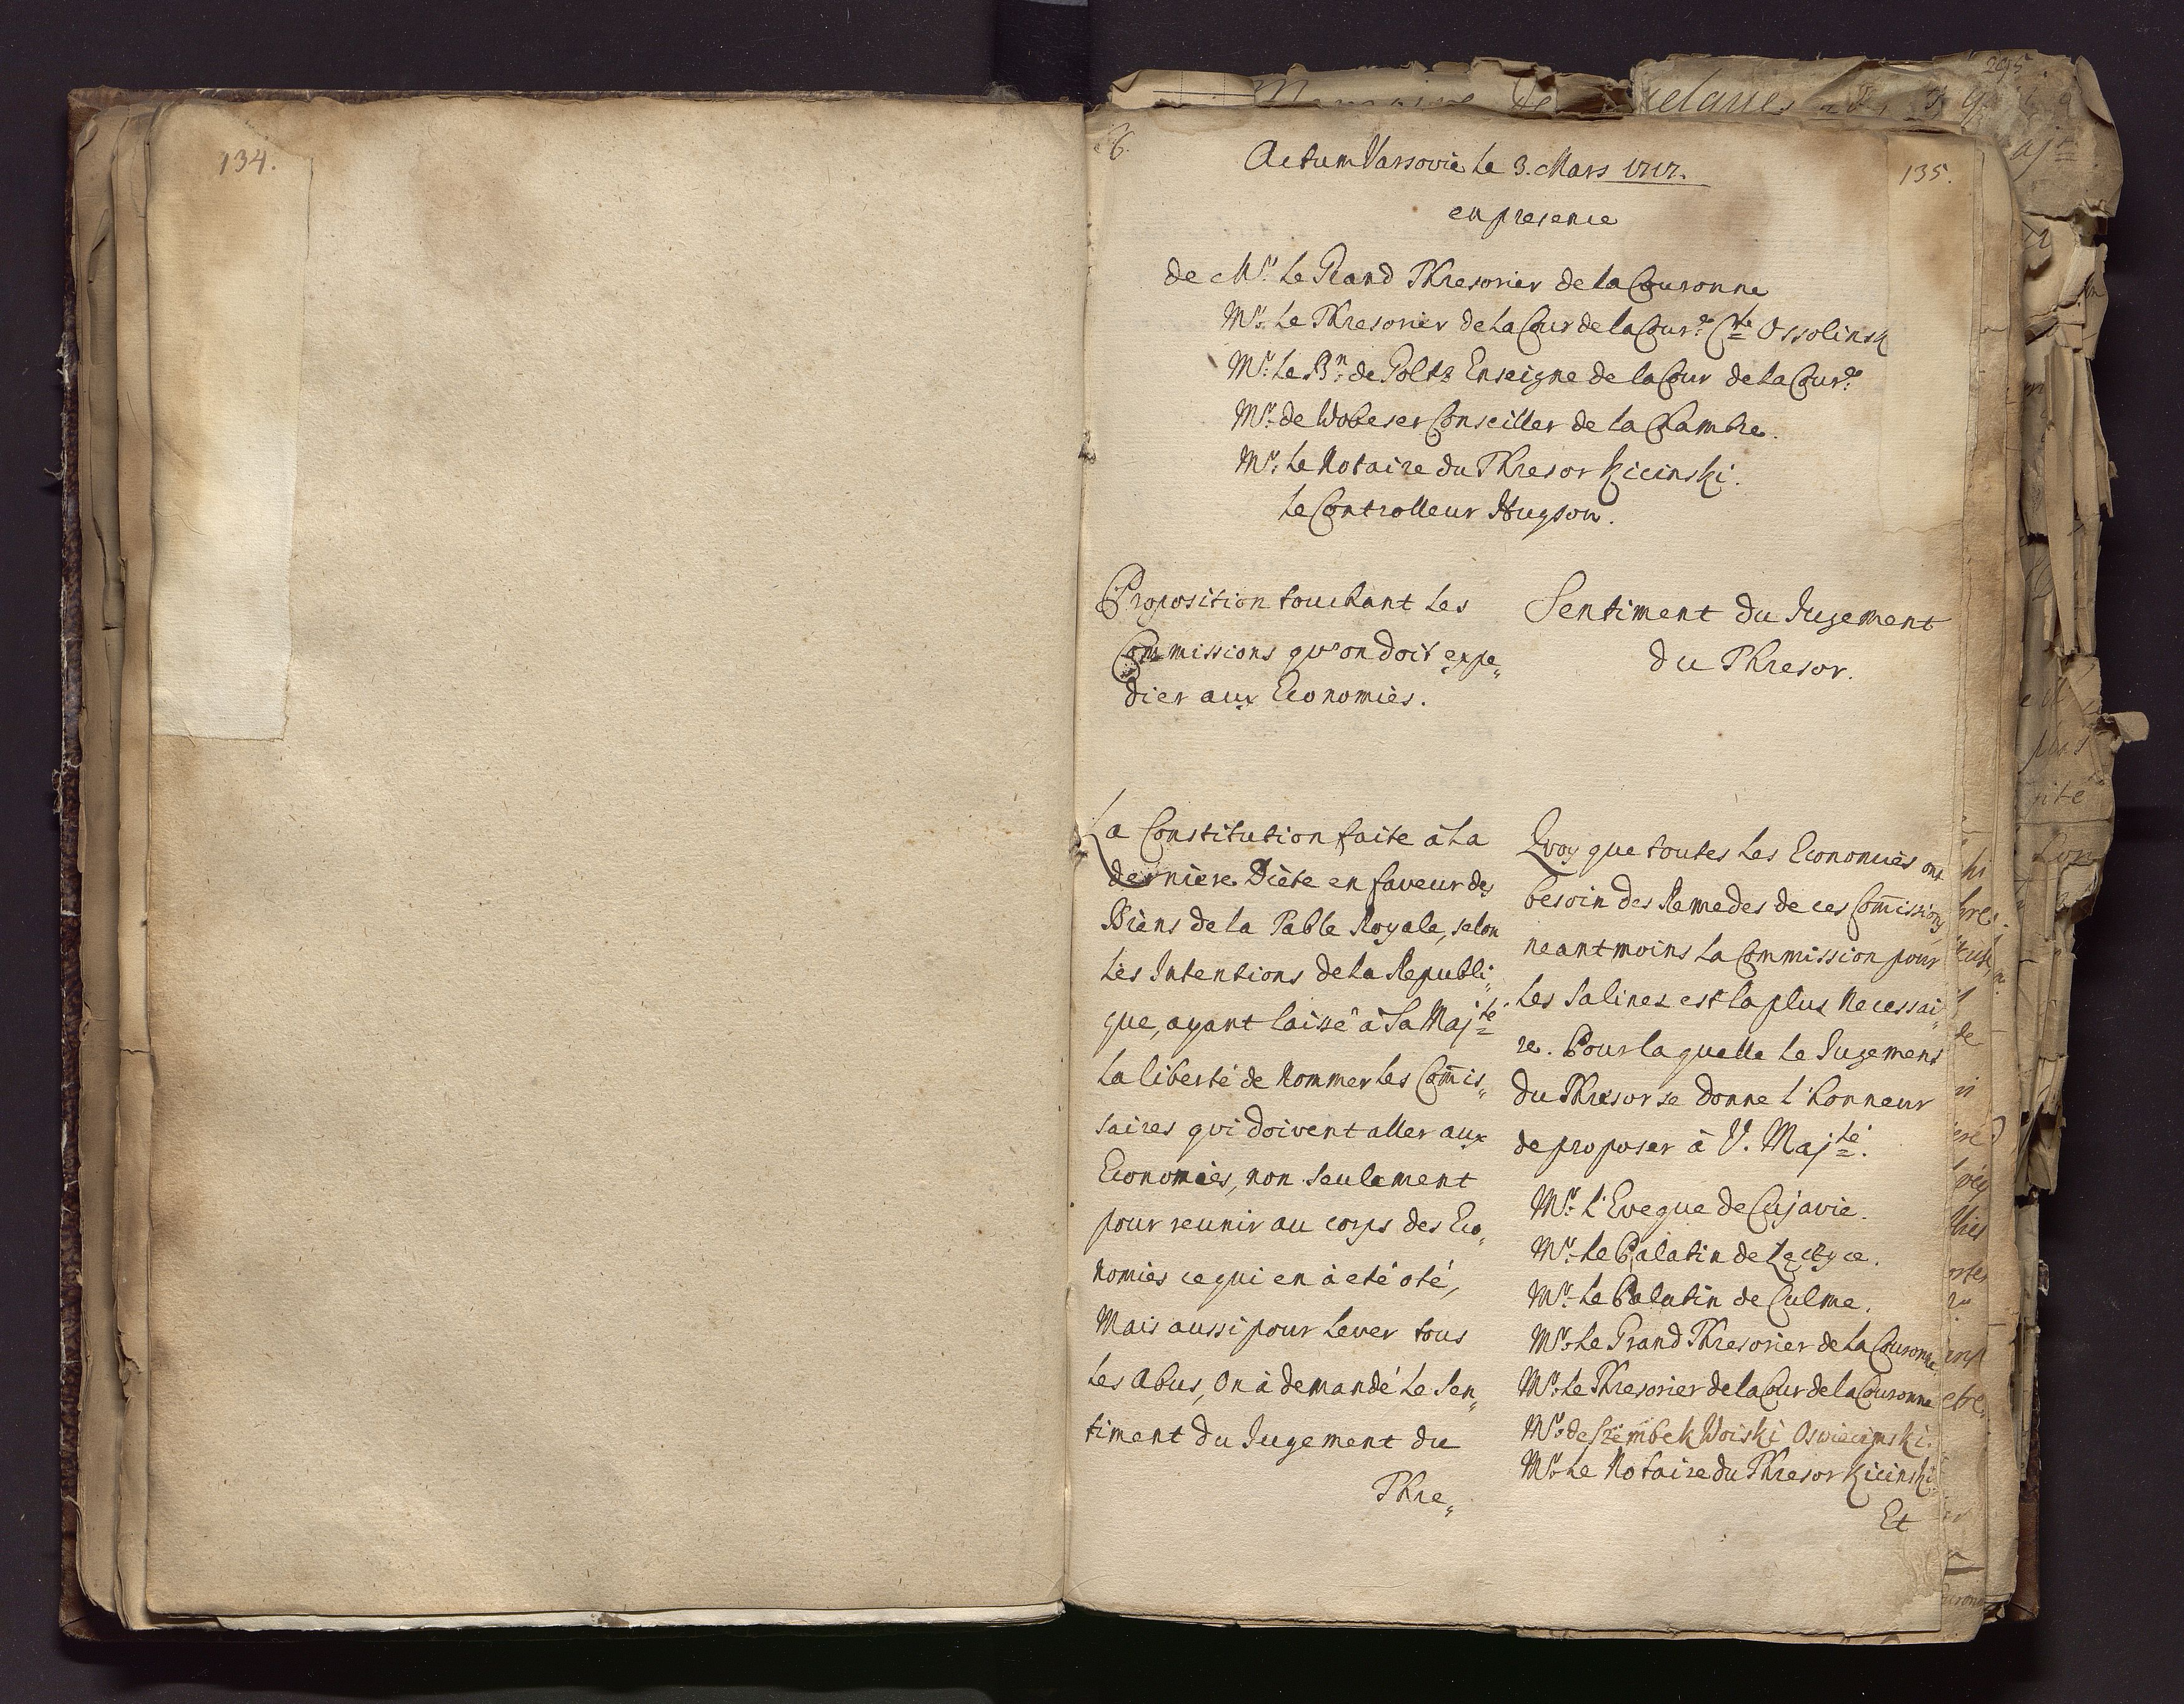 134.
135.
Actum Varsovie le 3. Mars 1717.
en presence
de Mr. le Grand Thresorier de la Couronne
Mr. le Thresorier de la Cour de la Cour.e Cte Ossolinsk
Mr. le Bn. de Goltz Enseigne de la Cour de la Cour.e
Mr. de Wobeser Conseiller de la Chambre.
Mr. le Notaire du Thresor Kicinski.
le Controlleur Hugson.
Proposition touchant les
Commissions qu'on doit expe„
dier aux Economiès.
La Constitution faite à la
dernière Diète en faveur des
Bièns de la Table Royale, selon
lès Intentions de la Republi„
que, ayant laissé à Sa Majté
la liberté de Nommer les Com̄is„
saires qui doivent aller aux
Economiès, non seulement
pour reunir au corps des Eco„
nomiès ce qui en à eté oté,
Mais aussi pour lever tous
les Abus, On à demandé le Sen„
timent du Jugement du
Thre„
Sentiment du Jugement
du Thresor.
Qvoy que toutes les Economiès ont
besoin des Remedes de ces Com̄issions
neantmoins la Commission pour
les Salines est la plus Necessai„
re. Pour laquelle le Jugement
du Thresor se donne l'honneur
de proposer à V. Majté.
Mr. l'Eveque de Cujavie.
Mr. le Palatin de Lęczyce.
Mr. le Palatin de Culme.
Mr. le Grand Thresorier de la Couronne
Mr. le Thresorier de la Cour de la Couronne
Mr. de Szembek Woiski Oswiecimski.
Mr. le Notaire du Thresor Kicinski.
Et